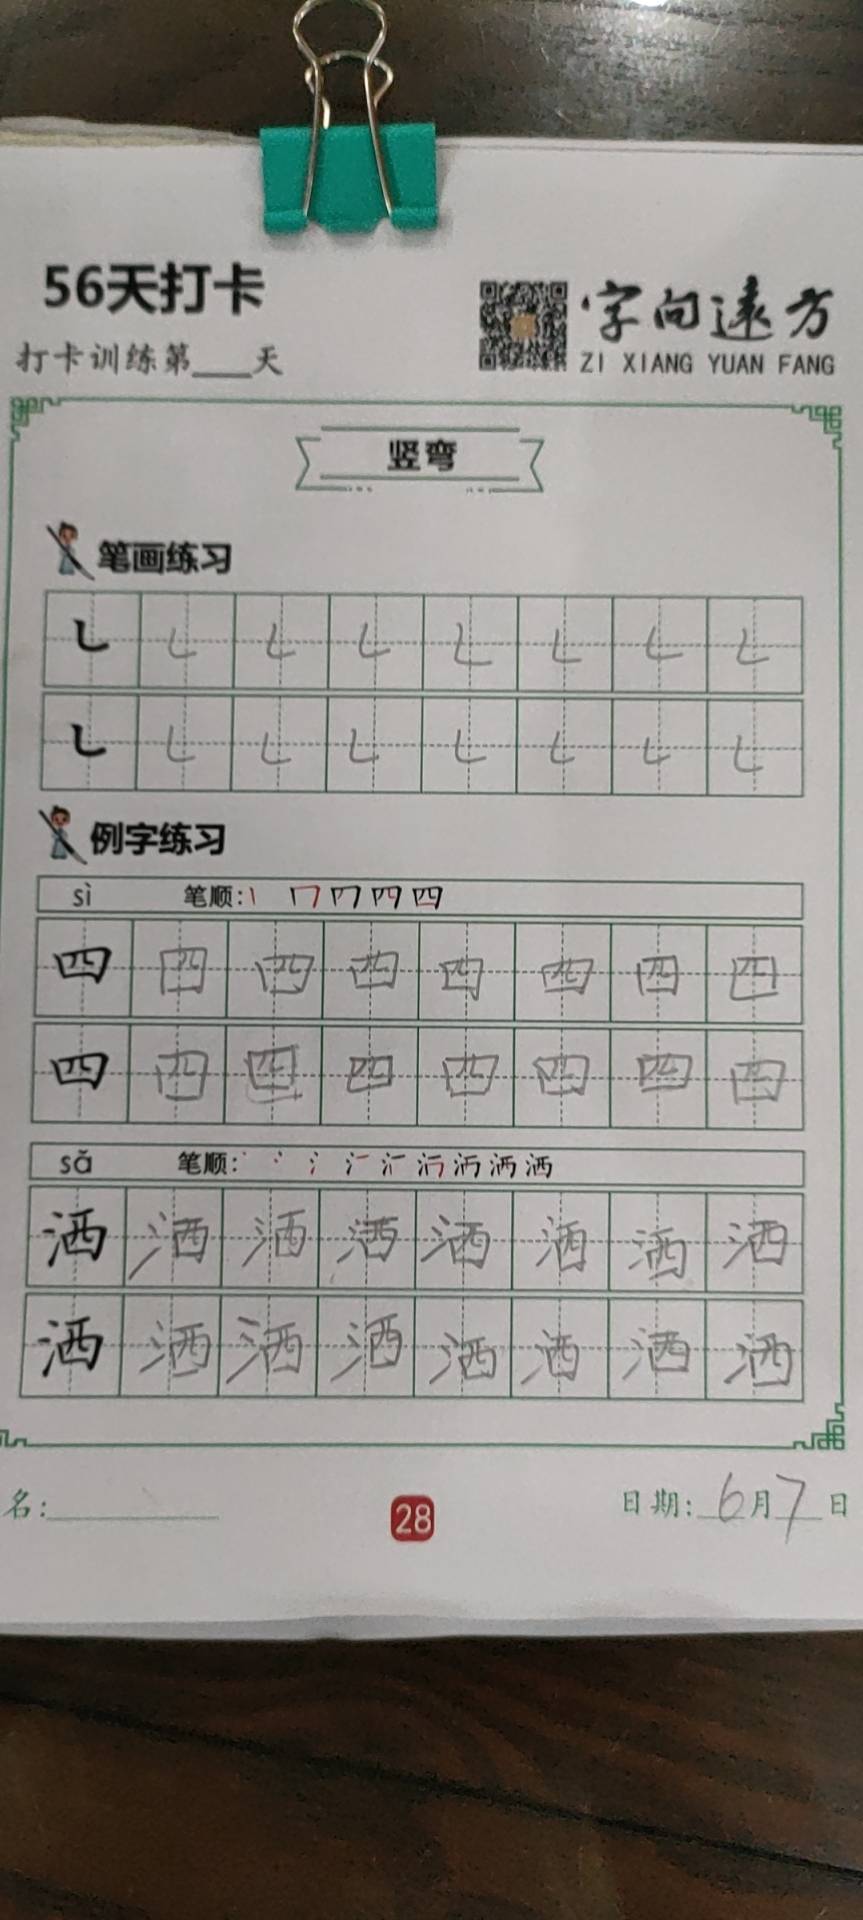 56天打卡
打卡训练第___天
字向远方
ZI XIANG YUAN FANG
竖弯
笔画练习
㇄ ㇄ ㇄ ㇄ ㇄ ㇄ ㇄ ㇄
㇄ ㇄ ㇄ ㇄ ㇄ ㇄ ㇄ ㇄
例字练习
sì 笔顺:
四 四 四 四 四 四 四 四
四 四 四 四 四 四 四 四
sǎ 笔顺:
洒 洒 洒 洒 洒 洒 洒 洒
洒 洒 洒 洒 洒 洒 洒 洒
名:
28
日期: 6月7日